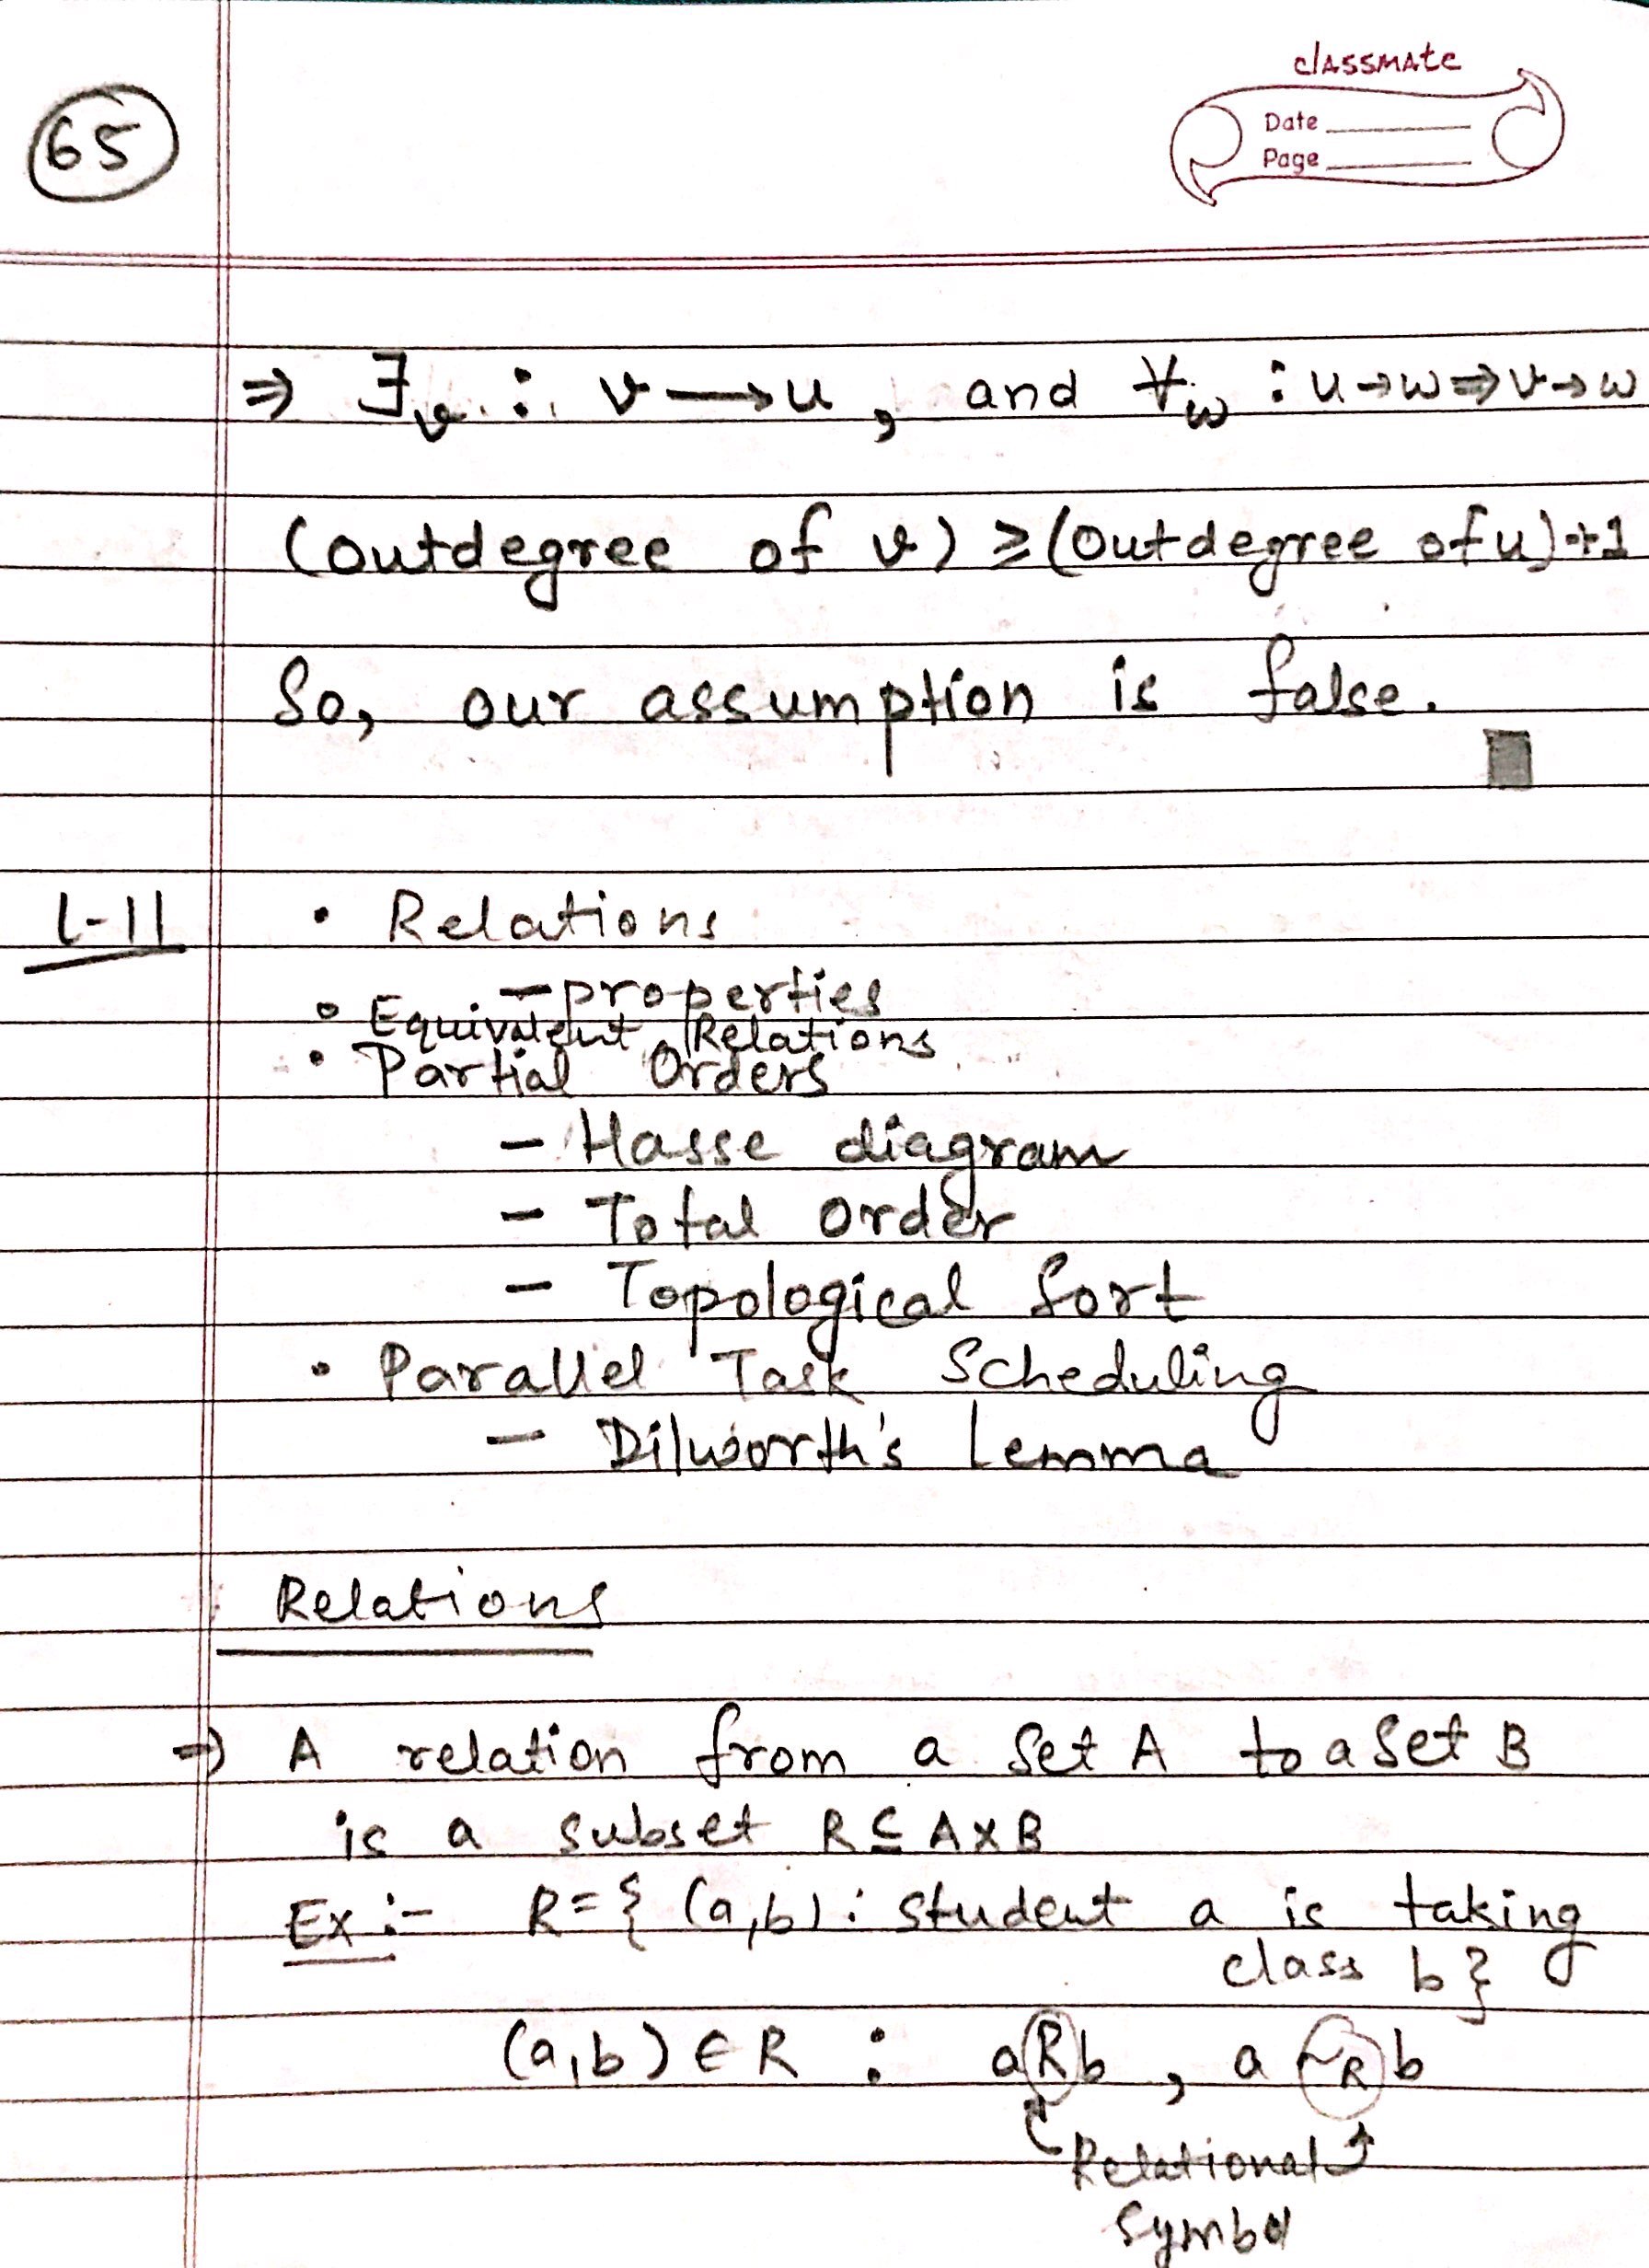 65
classmate
Date
Page
⇒ ∃v : v → u , and ∀w : u→w ⇒ v→w
(outdegree of v) ≥ (outdegree of u)+1
So, our assumption is false.
L-11
• Relations
- properties
• Equivalent Relations
• Partial Orders
- Hasse diagram
- Total order
- Topological Sort
• Parallel Task Scheduling
- Dilworth's Lemma
Relations
⇒ A relation from a set A to a set B
is a subset R ⊆ A×B
Ex :- R = { (a,b) : student a is taking
class b }
(a,b) ∈ R : aRb , a ~R b
Relational
Symbol